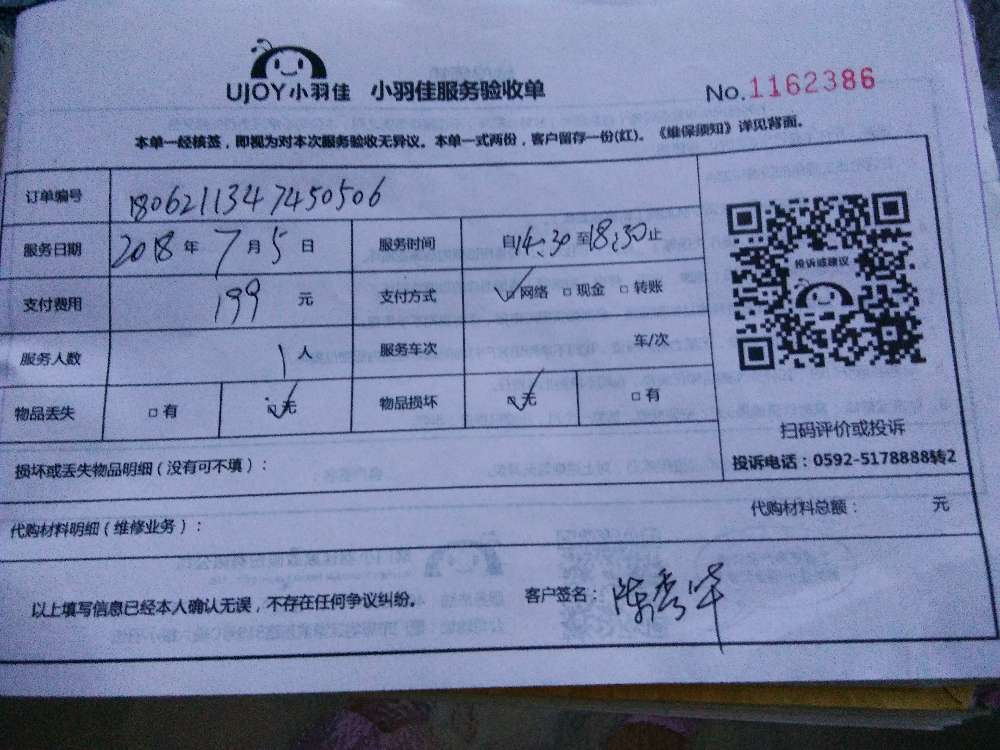 UJOY小羽佳 小羽佳服务验收单 No.1162386
本单一经核签，即视为对本次服务验收无异议。本单一式两份，客户留存一份(红)。《维保须知》详见背面。
订单编号 1806211347450506
服务日期 2018年7月5日 服务时间 自14:30至18:30止
支付费用 199元 支付方式 ☑网络 □现金 □转账
服务人数 1人 服务车次 车/次
物品丢失 □有 ☑无 物品损坏 ☑无 □有
投诉或建议
扫码评价或投诉
投诉电话：0592-5178888转2
损坏或丢失物品明细（没有可不填）：
代购材料明细（维修业务）： 代购材料总额： 元
以上填写信息已经本人确认无误，不存在任何争议纠纷。 客户签名：